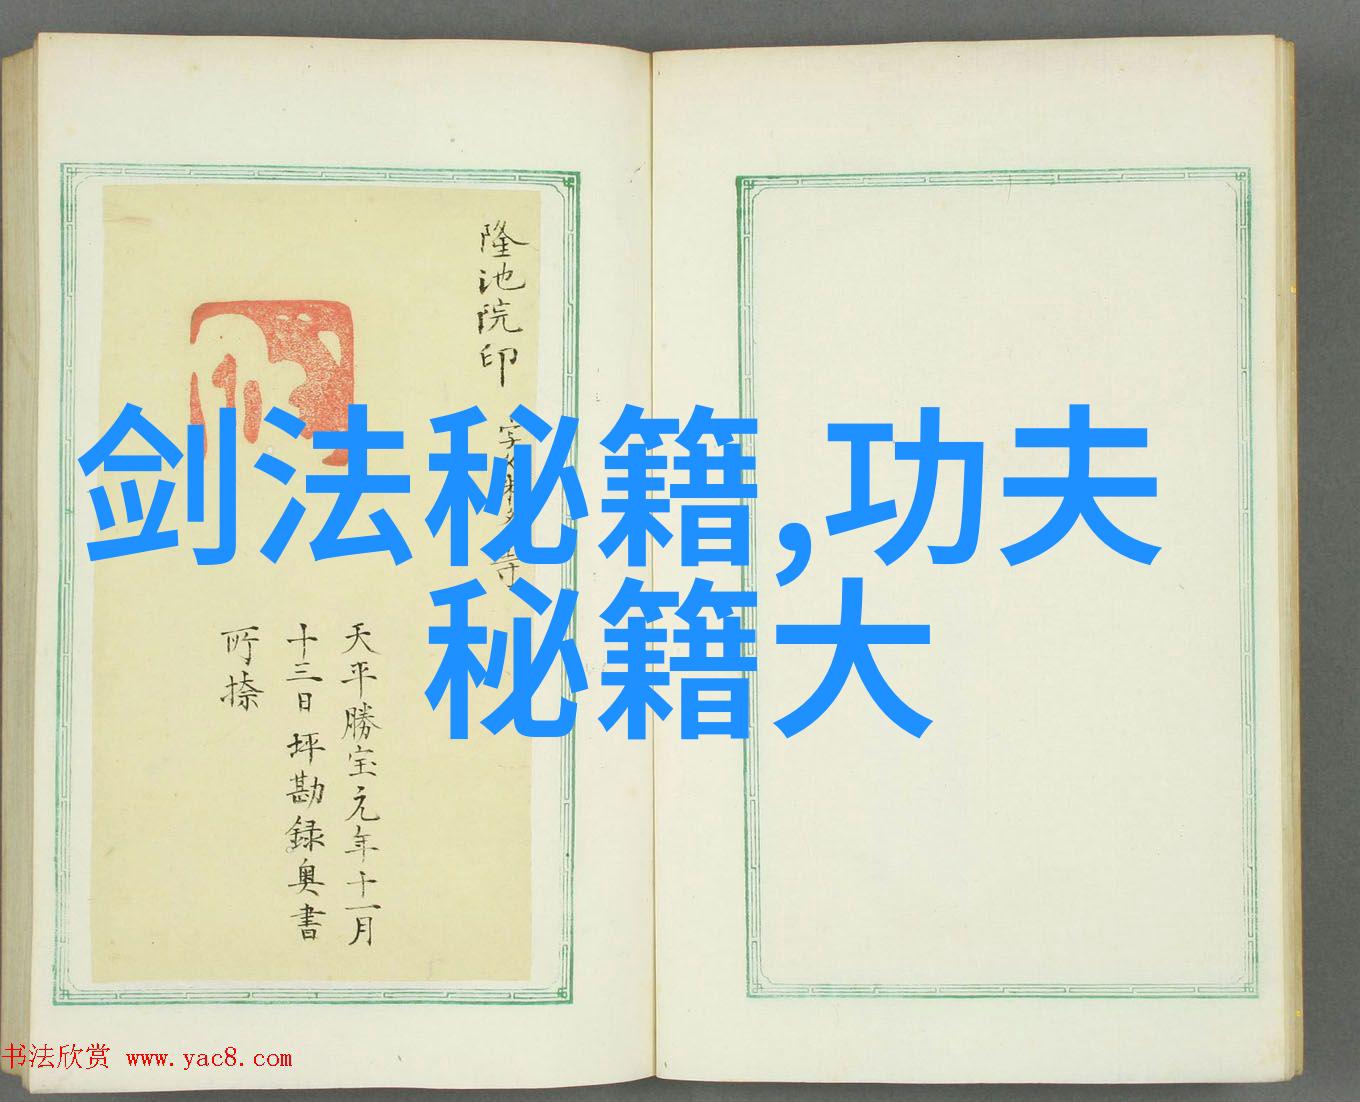 剑法秘籍,功夫
秘籍大
隆池院印
天平勝宝元年十一月
十三日坪勘録奥書
所捺
书法欣赏 www.yac8.com